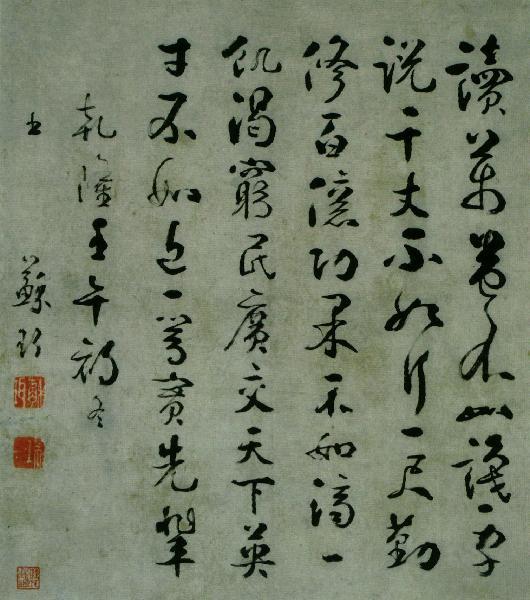 讀萬卷不如識一字
説千丈不如行一尺勤
修百億功果不如濟一
飢渴窮民廣交天下英
才不如近一篤實先輩
乾隆壬午初冬
蘇珥